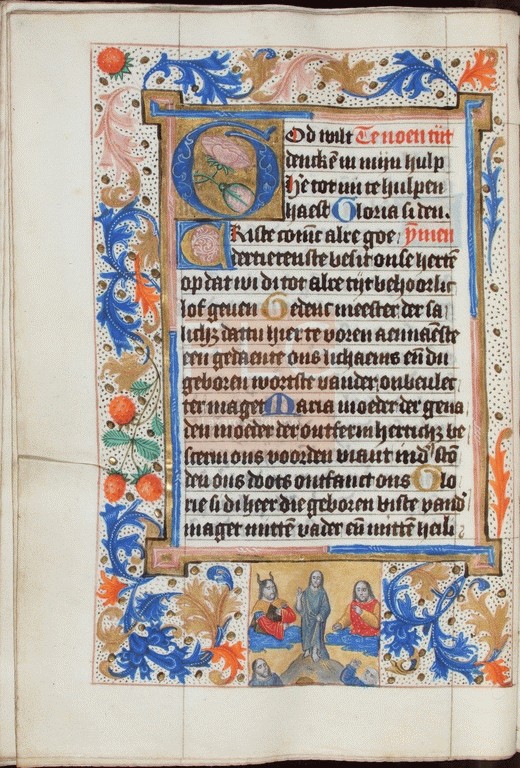 God wilt Te noen tijt
dencken in mijn hulp
here tot mi te hulpen
haest Gloria si den.
Kriste comē alre goe, ymnen
dertierenste besit onse hertē
op dat wi di tot alre tijt behoorlic
lof geuen Gedenc meester der sa
lichʒ dattu hier te voren aennaemste
een gedaente ons lichaems eñ du
geboren wortste vander onbeulec
ter maget Maria moeder der gena
den moeder der ontfermherticheʒ be
scerm ons voorden viant indʼ stō
den ons doots ontfanct ons Glo
rie si di heer die geboren biste vandʼ
maget mittē vader eñ mittē heili